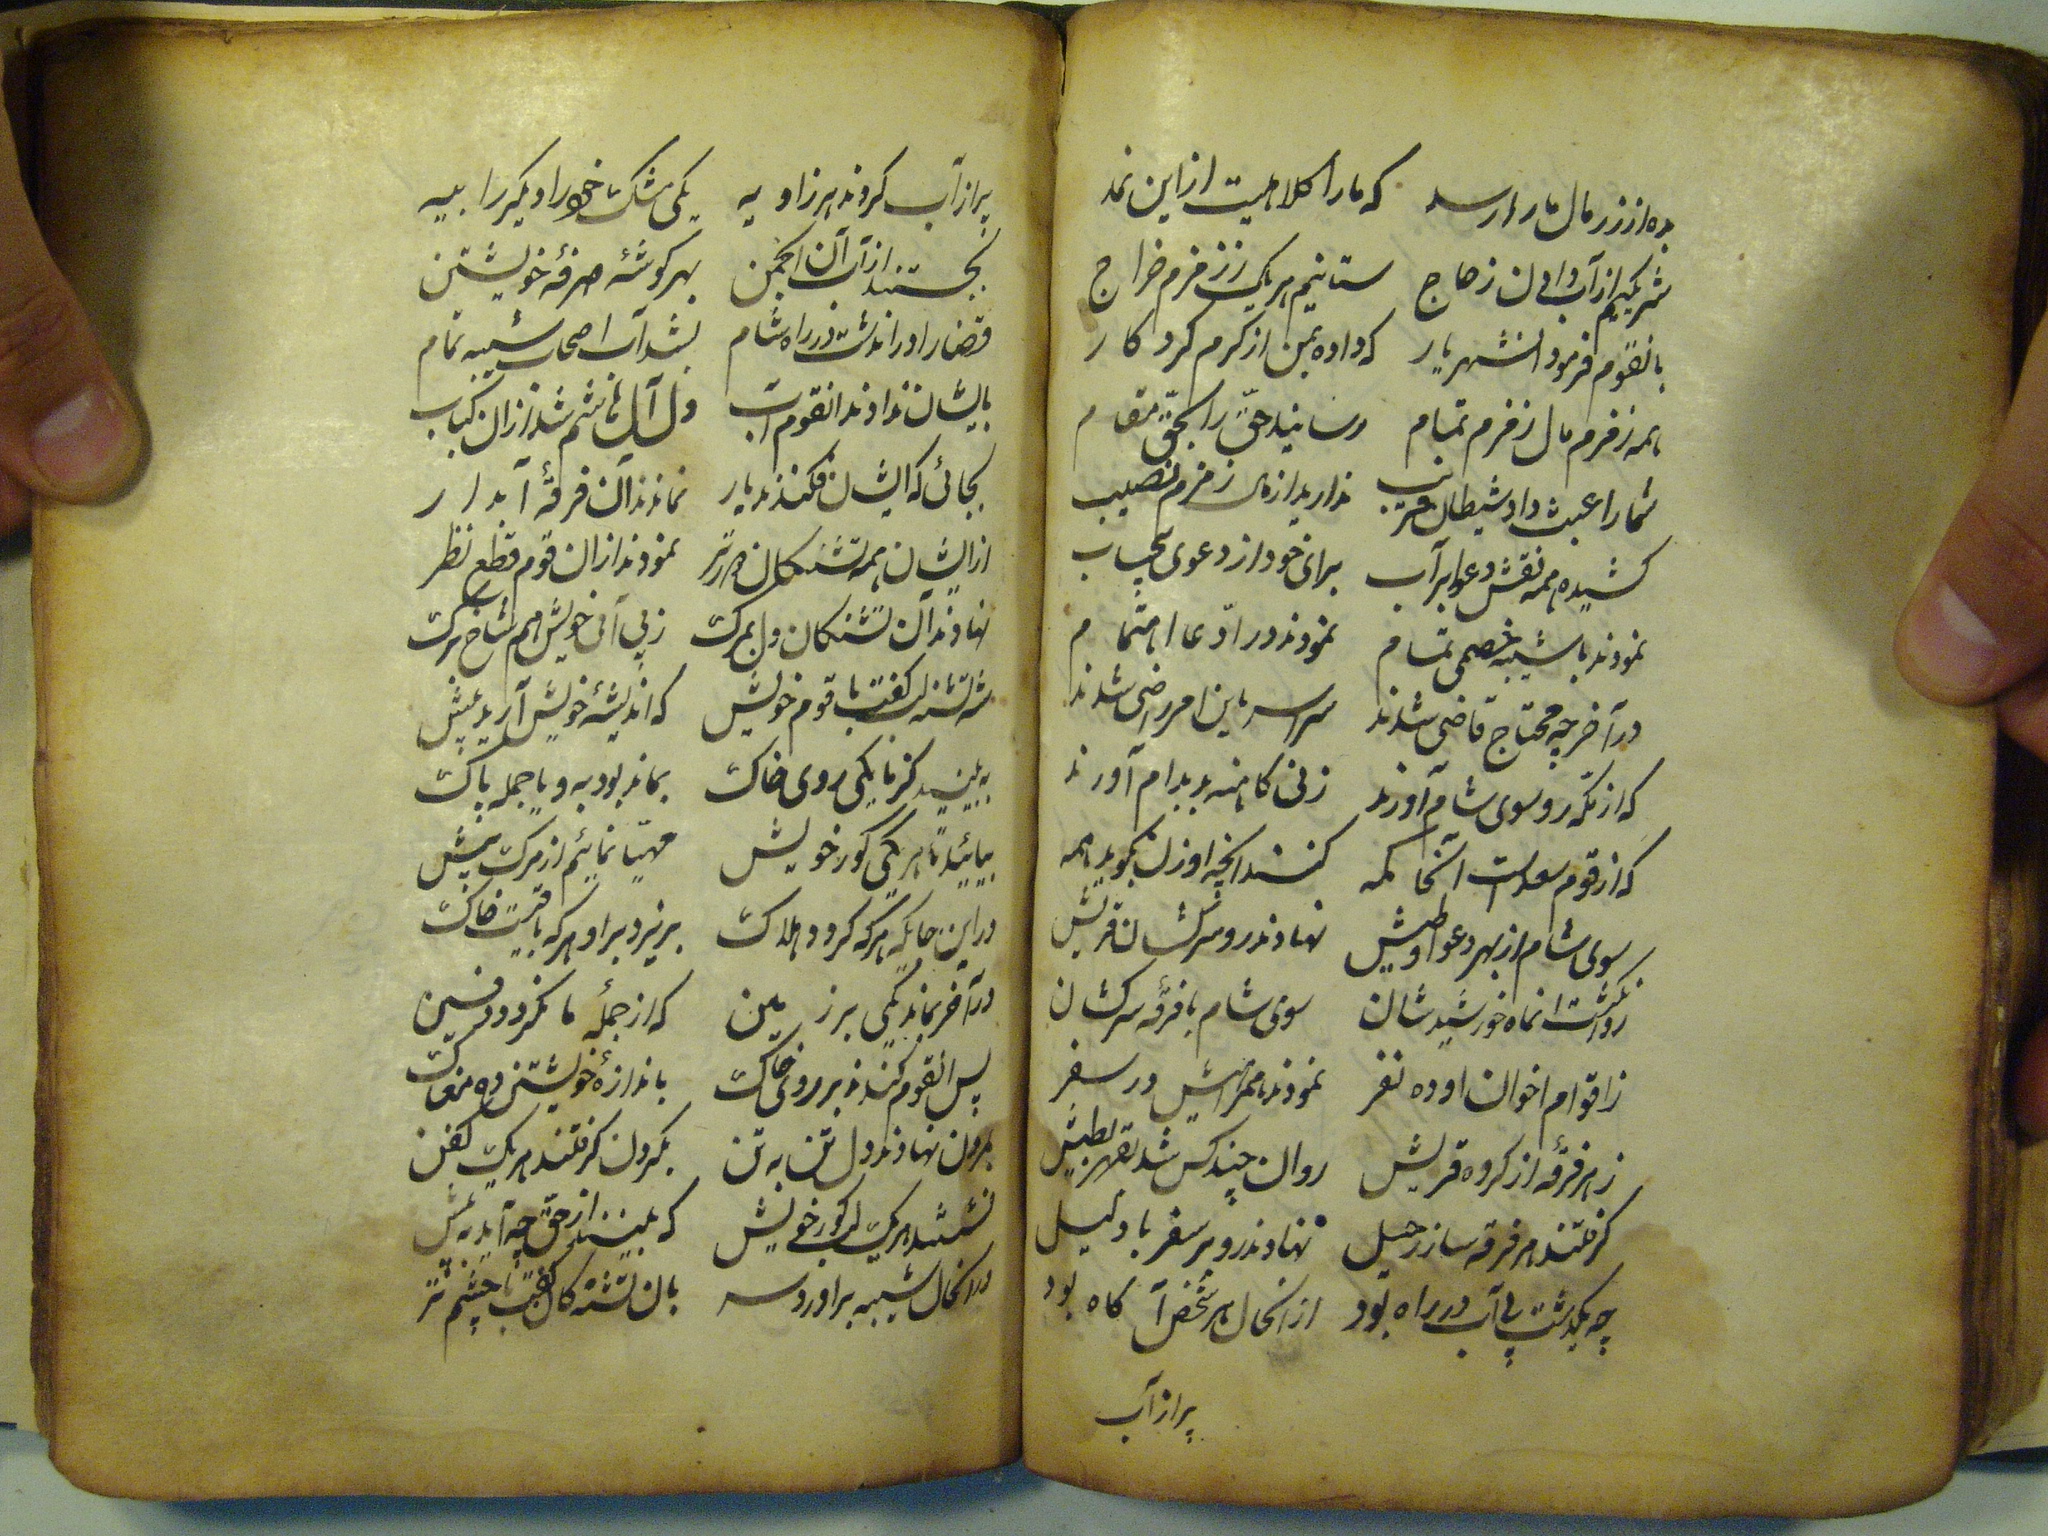 بده از زر مال ما را رسد که ما را کلاهیست از این نمد
شریکیم از آب و از ن زحاج ستانیم هر یک ز زمزم خراج
بانقوم فرمود انشهریار که داده بمن از کرم کردکار
همه زمزم مال زمزم تمام رسانید حق را بحق مقام
شما را عبث داد شیطان فریب ندارید از مال زمزم نصیب
کشیده همه نقش دعوا بر آب برای خود از دعوی بیحساب
نمودند با شیبه خصمی تمام نمودند در ادعا اهتمام
در آخر چه محتاج قاضی شدند سراسر باین امر راضی شدند
که از مکه رو سوی شام آورند زنی کاهنه بد بدام آورند
که از قوم سعد است آنجا کمه کنند انچه او زان بگوید همه
سوی شام از بهر دعوا و طیش نهادند رو سرکشان قریش
روان گشت انماه خورشید شان سوی شام با فرقه سرکشان
ز اقوام اخوان او ده نفر نمودند همراهیش در سفر
ز هر فرقه از کروه قریش روان چند کس شد بقهر و بطیش
کرفتند هر فرقه ساز رحیل نهادند رو بر سفر با دلیل
چه یکدشت بی آب در راه بود از انحال هر شخص آکاه بود
پر از آب
پر از آب کردند هر زاویه یکی مشک خود را دیگر را بیه
بجستند از آب آن انجمن بهر کوشه صرفه خویشتن
قضا را در اندشت در راه شام بشد آب اصحاب شیبه تمام
بایشان ندادند انقوم آب دل آل هاشم شد از ان کباب
بجائی که ایشان فکندند بار نماندند آن فرقه آبدار
از ایشان همه تشنکان در بدر نمودند از ان قوم قطع نظر
نهادند آن تشنکان دل بمرک ز بی آبی خویش هم شاخ برک
شه تشنه لب گفت با قوم خویش که اندیشه خویش آرید پیش
ببینید کز ما یکی روی خاک بماند بود به و یا جمله پاک
بیائید تا هر یکی کور خویش مهیا نمائیم از مرک پیش
در این جایکه هر که کردد هلاک بریزد بر او هر که باقیست خاک
در آخر بماند یکی بر زمین که از جمله ما نکردد دفین
پس انقوم کندند بر روی خاک باندازه خویشتن ده مغاک
بمردن نهادند دل تن به تن بکردن کرفتند هر یک کفن
نشستند هر یک لب کور خویش که بینند از حق چه آید به پیش
در انحال شیبه بر اورد سر بان تشنه کان گفت با چشم تر